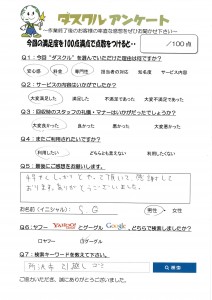 ダスクル アンケート
～作業終了後のお客様の率直な感想をぜひお聞かせ下さい～
今回の満足度を100点満点で点数をつけると・・ /100点
Q1：今回"ダスクル"を選んでいただけた理由は何ですか？
安心感 料金 専門性 担当者の対応 知名度 サービス内容
Q2：サービスの内容はいかがでしたか？
大変満足した 満足した 不満足であった 大変不満足であった
Q3：回収時のスタッフの礼儀・マナーはいかがだったでしょうか？
大変良かった 良かった 悪かった 大変悪かった
Q4：またご利用されたいですか？
利用したい どちらとも言えない 利用したくない
Q5：最後にご感想をお願いします。
して頂いて、感謝して
おります。ありがとうございました。
お名前(イニシャル)： S. G 男性・女性
Q6：ヤフー YAHOO! とグーグル Google、どちらで検索しましたか？
ロヤフー ②グーグル
Q7：検索キーワードを教えて下さい。
所沢市 引越し ゴミ 検索
ご協力いただき、誠にありがとうございました。